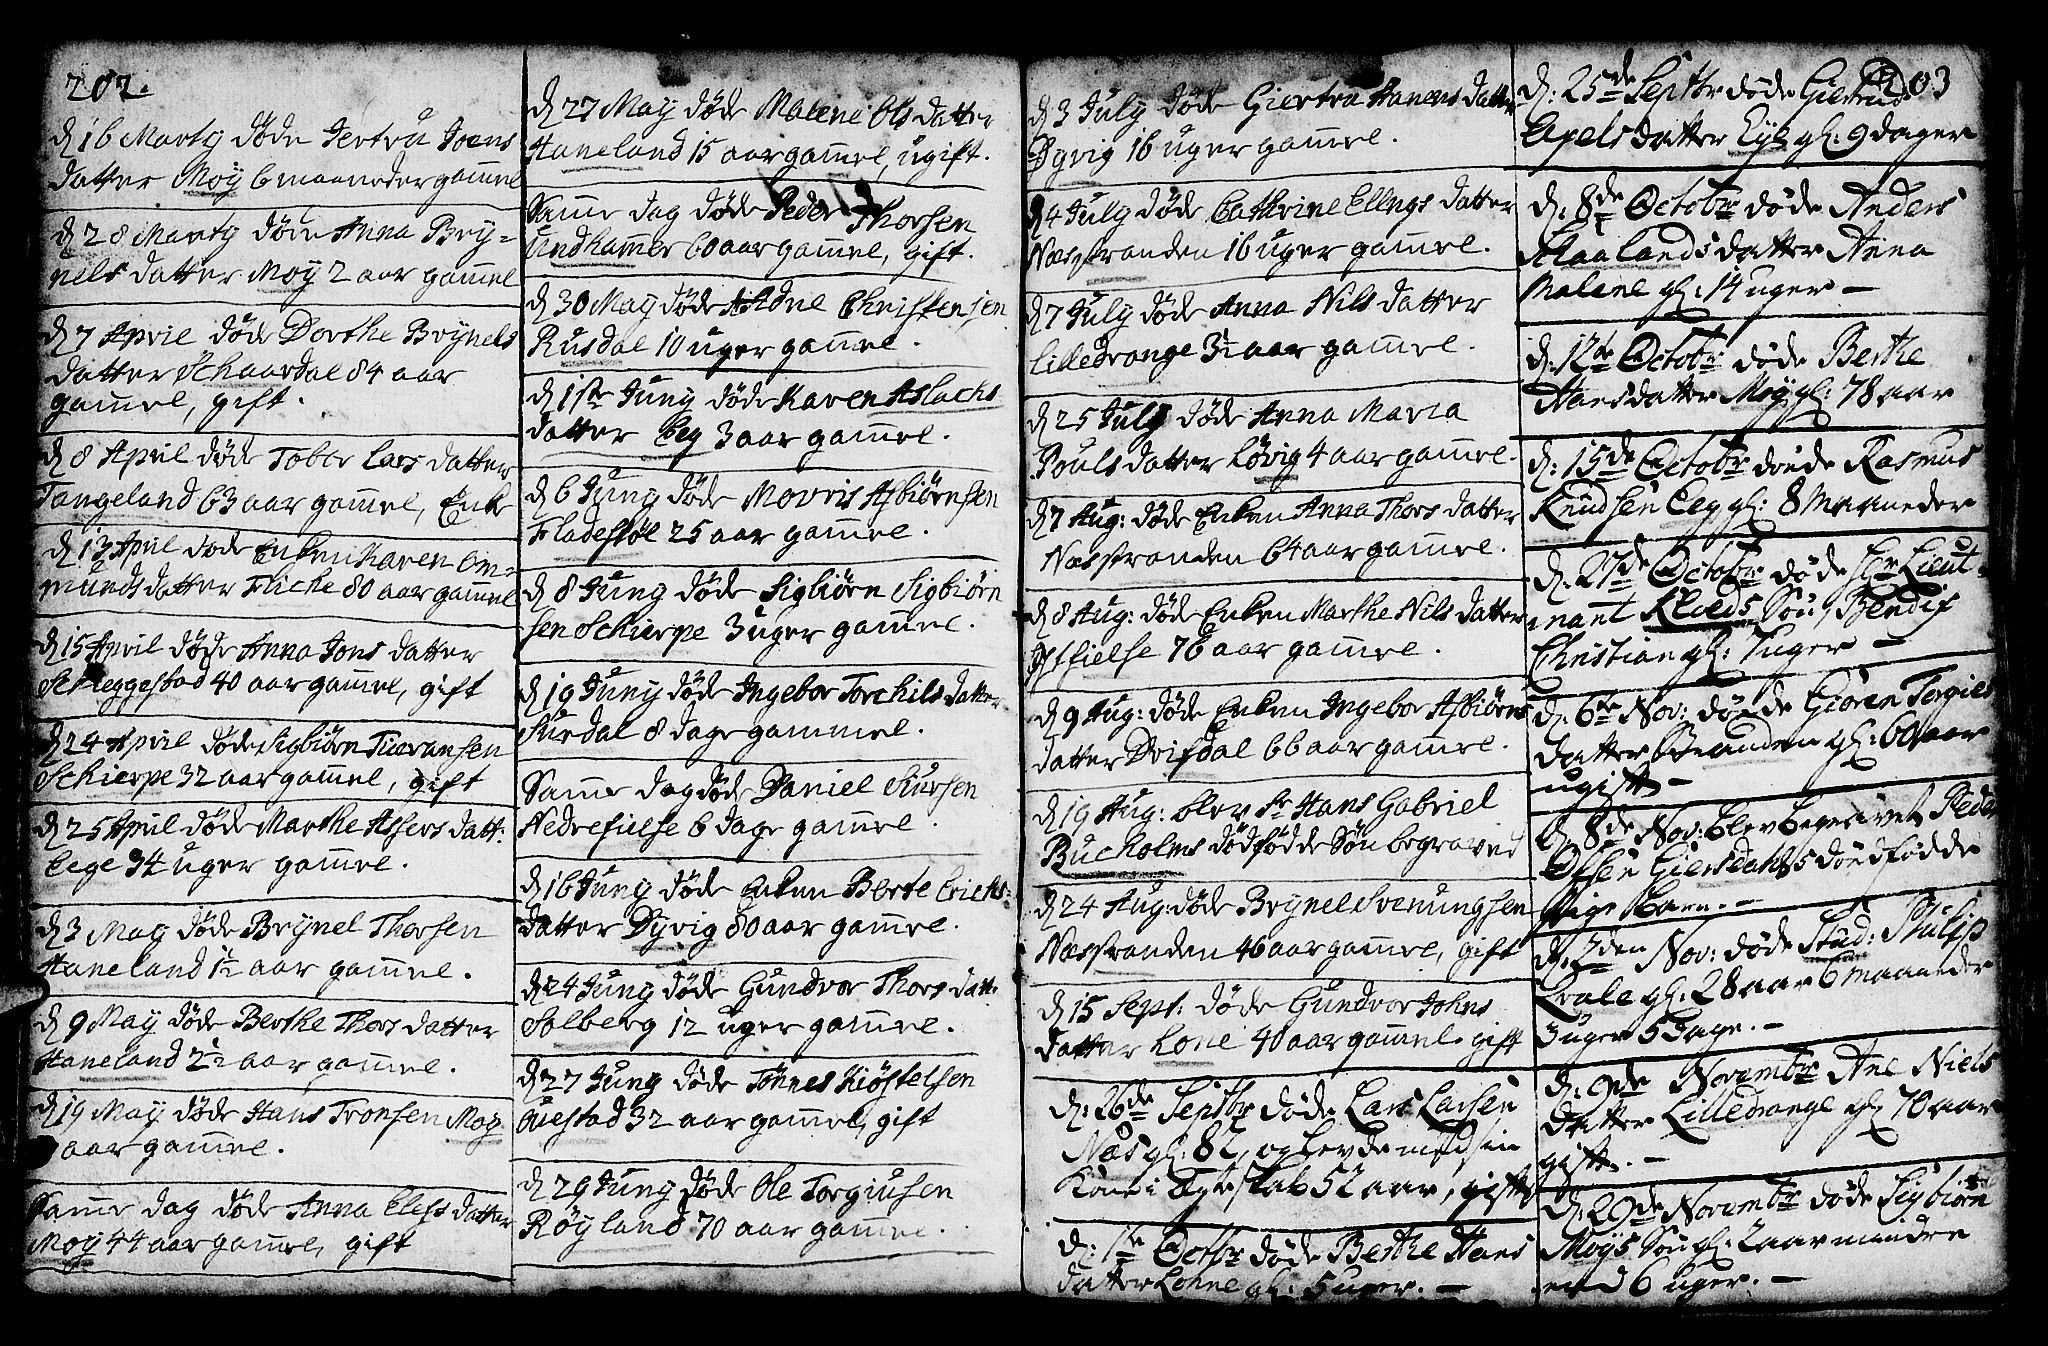 202.
d 16 Marty døde Jertru Joens
datter Moÿ 6 maaneder gam̄el
d 28 Marty døde Anna Brÿ=
nels datter Moÿ 2 aar gam̄el
d 7 April døde Dorthe Brÿnels
datter Schaardal 84 aar
gam̄el, gift.
d 8 April døde Tober Lars datter
Tangeland 63 aar gam̄el, Enke
d 13 April døde Enken Karen Om=
munds datter Fliche 80 aar gam̄el
d 15 April døde Anna Jons datter
Scheggestad 40 aar gam̄el, gift
d 24 April døde Sigbiørn Tieransen
Schierpe 32 aar gam̄el, gift
d 25 April døde Marthe Assers datt:
Eege 34 uger gam̄el.
d 3 May døde Brÿnel Thorsen
Haneland 1½ aar gam̄el.
d 9 Maÿ døde Berthe Thors datter
Haneland 2½ aar gam̄el.
d 19 Maÿ døde Hans Tronsen Moÿ
aar gam̄el.
Sam̄e dag døde Anna Elefs datter
Moÿ 44 aar gam̄el, gift
d 27 Maÿ døde Malene Ols datter
Haneland 15 aar gam̄el, ugift.
Sam̄e dag døde Peder Thorsen
Undham̄er 60 aar gam̄el, gift.
d 30 Maÿ døde Ædne Christensen
Rusdal 10 uger gam̄el.
d 1ste Juny døde Karen Aslachs
datter Eeg 3 aar gam̄el.
d 6 Juny døde Movris Asbiørnsen
Fladestøl 25 aar gam̄el.
d 8 Juny døde Sigbiørn Sigbiørn
sen Schierpe 3 uger gam̄el.
d 19 Juny døde Ingebor Torchils datter
Surdal 8 dage gammel.
Sam̄e dag døde Daniel Siursen
Nedrefielse 6 dage gam̄el.
d 16 Juny døde Enken Berte Erichs=
datter Dÿvig 80 aar gam̄el.
d 24 Juny døde Gundvor Thors datt.
Solberg 12 uger gam̄el.
d 27 Juny døde Tønnes Kiøstelsen
Qvestad 32 aar gam̄el, gift
d 29 Juny døde Ole Torgiusen
Røÿland 70 aar gam̄el.
d 3 July døde Giertru Hanens datter
Dyvig 16 uger gam̄el.
d 4 July døde Cathrine Ellings datter
Næsstranden 16 uger gam̄el.
d 7 July døde Anna Nils datter
Lilledrange 3½ aar gam̄el.
d 25 July døde Anna Maria
Pouls datter Løvig 4 aar gam̄el.
d 7 Aug: døde Enken Anna Thors datter
Næsstranden 64 aar gam̄el.
d 8 Aug: døde Enken Marthe Nils datter
Øffielse 76 aar gam̄el.
d 9 Aug: døde Enken Ingebor Asbiørns
datter Drifdal 66 aar gam̄el.
d 19 Aug: blev Sr Hans Gabriel
Bucholms dødfødde Søn begraved
d 24 Aug: døde Brÿnel Svenungsen
Næsstranden 46 aar gam̄el, gift
d 15 Sept: døde Gundvor Johns
datter Lone 40 aar gam̄el. gift
d: 26de Septbr døde Lars Larsen
Næs gl: 82, oplevde med sin
Kone i Egteskab 52 aar, gift
d: 1te Octbr døde Berthe Hans
datter Lohne gl: 5 uger. -
203
d: 25de Septbr døde Giertrud
Axels datter Eÿe gl: 9 dager
d: 8de Octobr døde Anders
Haalands datter Anna
Malene gl: 14 uger -
d: 12te Octobr døde Berthe
Hansdatter Moÿ gl: 78 aar
d: 15de Octobr døede Rasmus
Knudsen Eeg gl: 8 Maaneder
d: 27de Octobr døde Hr Lieut-
nant Kleeds Søn, Bendif
Christian gl: 7 uger -
d: 6te Nov: døde Giøren Torgies
datter Stranden gl: 60 aar
ugift -
d: 8de Nov: blev begravet Peder
Olsen Giersdahls dødfødde
Pige barn. -
d: 7den Nov: døde Stud: Philip
Kvale gl: 28 aar 6 maaneder
3 uger 5 Dage. -
d: 9de Novembr Ane Niels
datter Lilledrange gl: 70 aar
gift. -
d: 29de Novembr døde Sigbiørn
Moÿs Søn gl: 2 aar mindre
end 6 uger. -